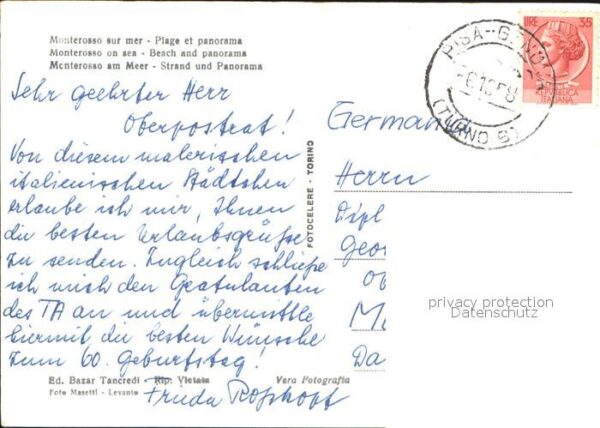 Monterosso sur mer - Plage et panorama
Monterosso on sea - Beach and panorama
Monterosso am Meer - Strand und Panorama
Sehr geehrter Herr
Oberpostrat!
Von diesem malerischen
italienischen Städtchen
erlaube ich mir, Ihnen
die besten Urlaubsgrüße
zu senden. Zugleich schließe
ich mich den Gratulanten
des TA an und übermittle
hiermit die besten Wünsche
zum 60. Geburtstag!
Frieda
Ed. Bazar Tancredi Rip. Vietata Vera Fotografia
Foto Masetti - Levanto
FOTOCELERE - TORINO
LIRE 35
ITALIANA
PISA
Germania
Herrn
Dipl
Geo
Ob
M
Da
privacy protection
Datenschutz